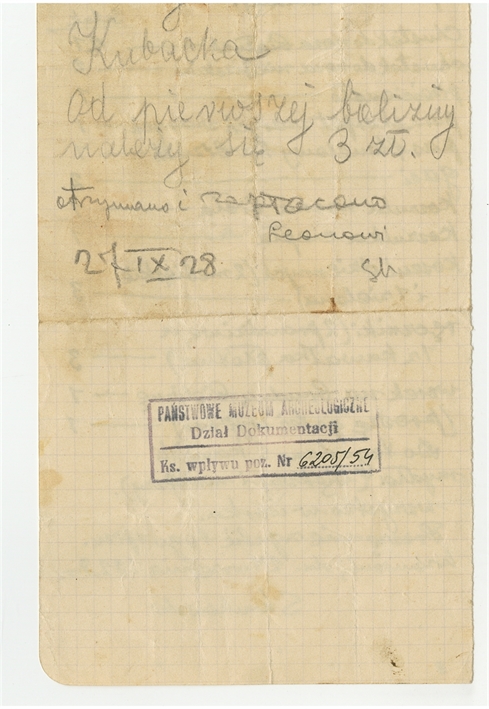 Kubacka
od pierwszej bielizny
należy się 3 zł.
otrzymano i zapłacono
Leonowi
27 IX 28
PAŃSTWOWE MUZEUM ARCHEOLOGICZNE
Dział Dokumentacji
Ks. wpływu poz. Nr 6205/54